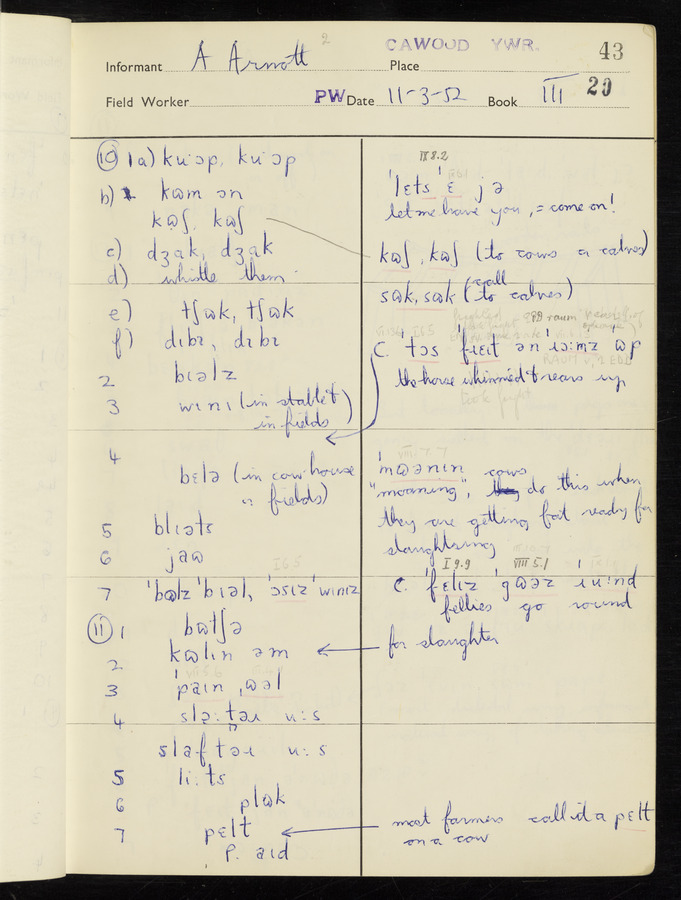 2
CAWOOD YWR. 43
Informant A Arnott Place
Field Worker PW Date 11-3-52 Book III 29
⑩ 1a) kuˑəp, kuˑəp
b) kɷm ɔn
kɷʃ, kɷʃ
c) dʒak, dʒak
d) whistle them
e) tʃɷk, tʃɷk
f) dɪbɪ, dɪbɪ
2 bɪəlz
3 wɪnɪ (in stable +)
in fields
4
bɛlə (in cow-house
" fields)
5 blɪəts
6 jaɷ
7 ˈbɷlz ˈbɪəl, ˈɔsɪz ˈwɪnɪz
⑪ 1 bɷtʃə
2 kɷlɪn əm
3 ˈpaɪn ˌɷəl
4 slə:təɹ u:s
slaftəɹ u:s
5 li:ts
6 plɷk
7 pɛlt
p. aɪd
III 8.2
ˈlɛts ˈɛ jə
let me have you, = come on!
kɷʃ, kɷʃ (to cows or calves)
call
sɷk, sɷk (to calves)
C. ˈtɔs ˈfɹɛɪt ən ˈɹɪə:mz ɷp
the horse whinnied & rears up
ˈmɷənɪn cows
"moaning", do this when
they are getting fat ready for
slaughtering
I 9.9 VIII 5.1
C. ˈfɛlɪz ˈgɷəz ˈɹu:nd
fellies go round
for slaughter
most farmers call it a pelt
on a cow